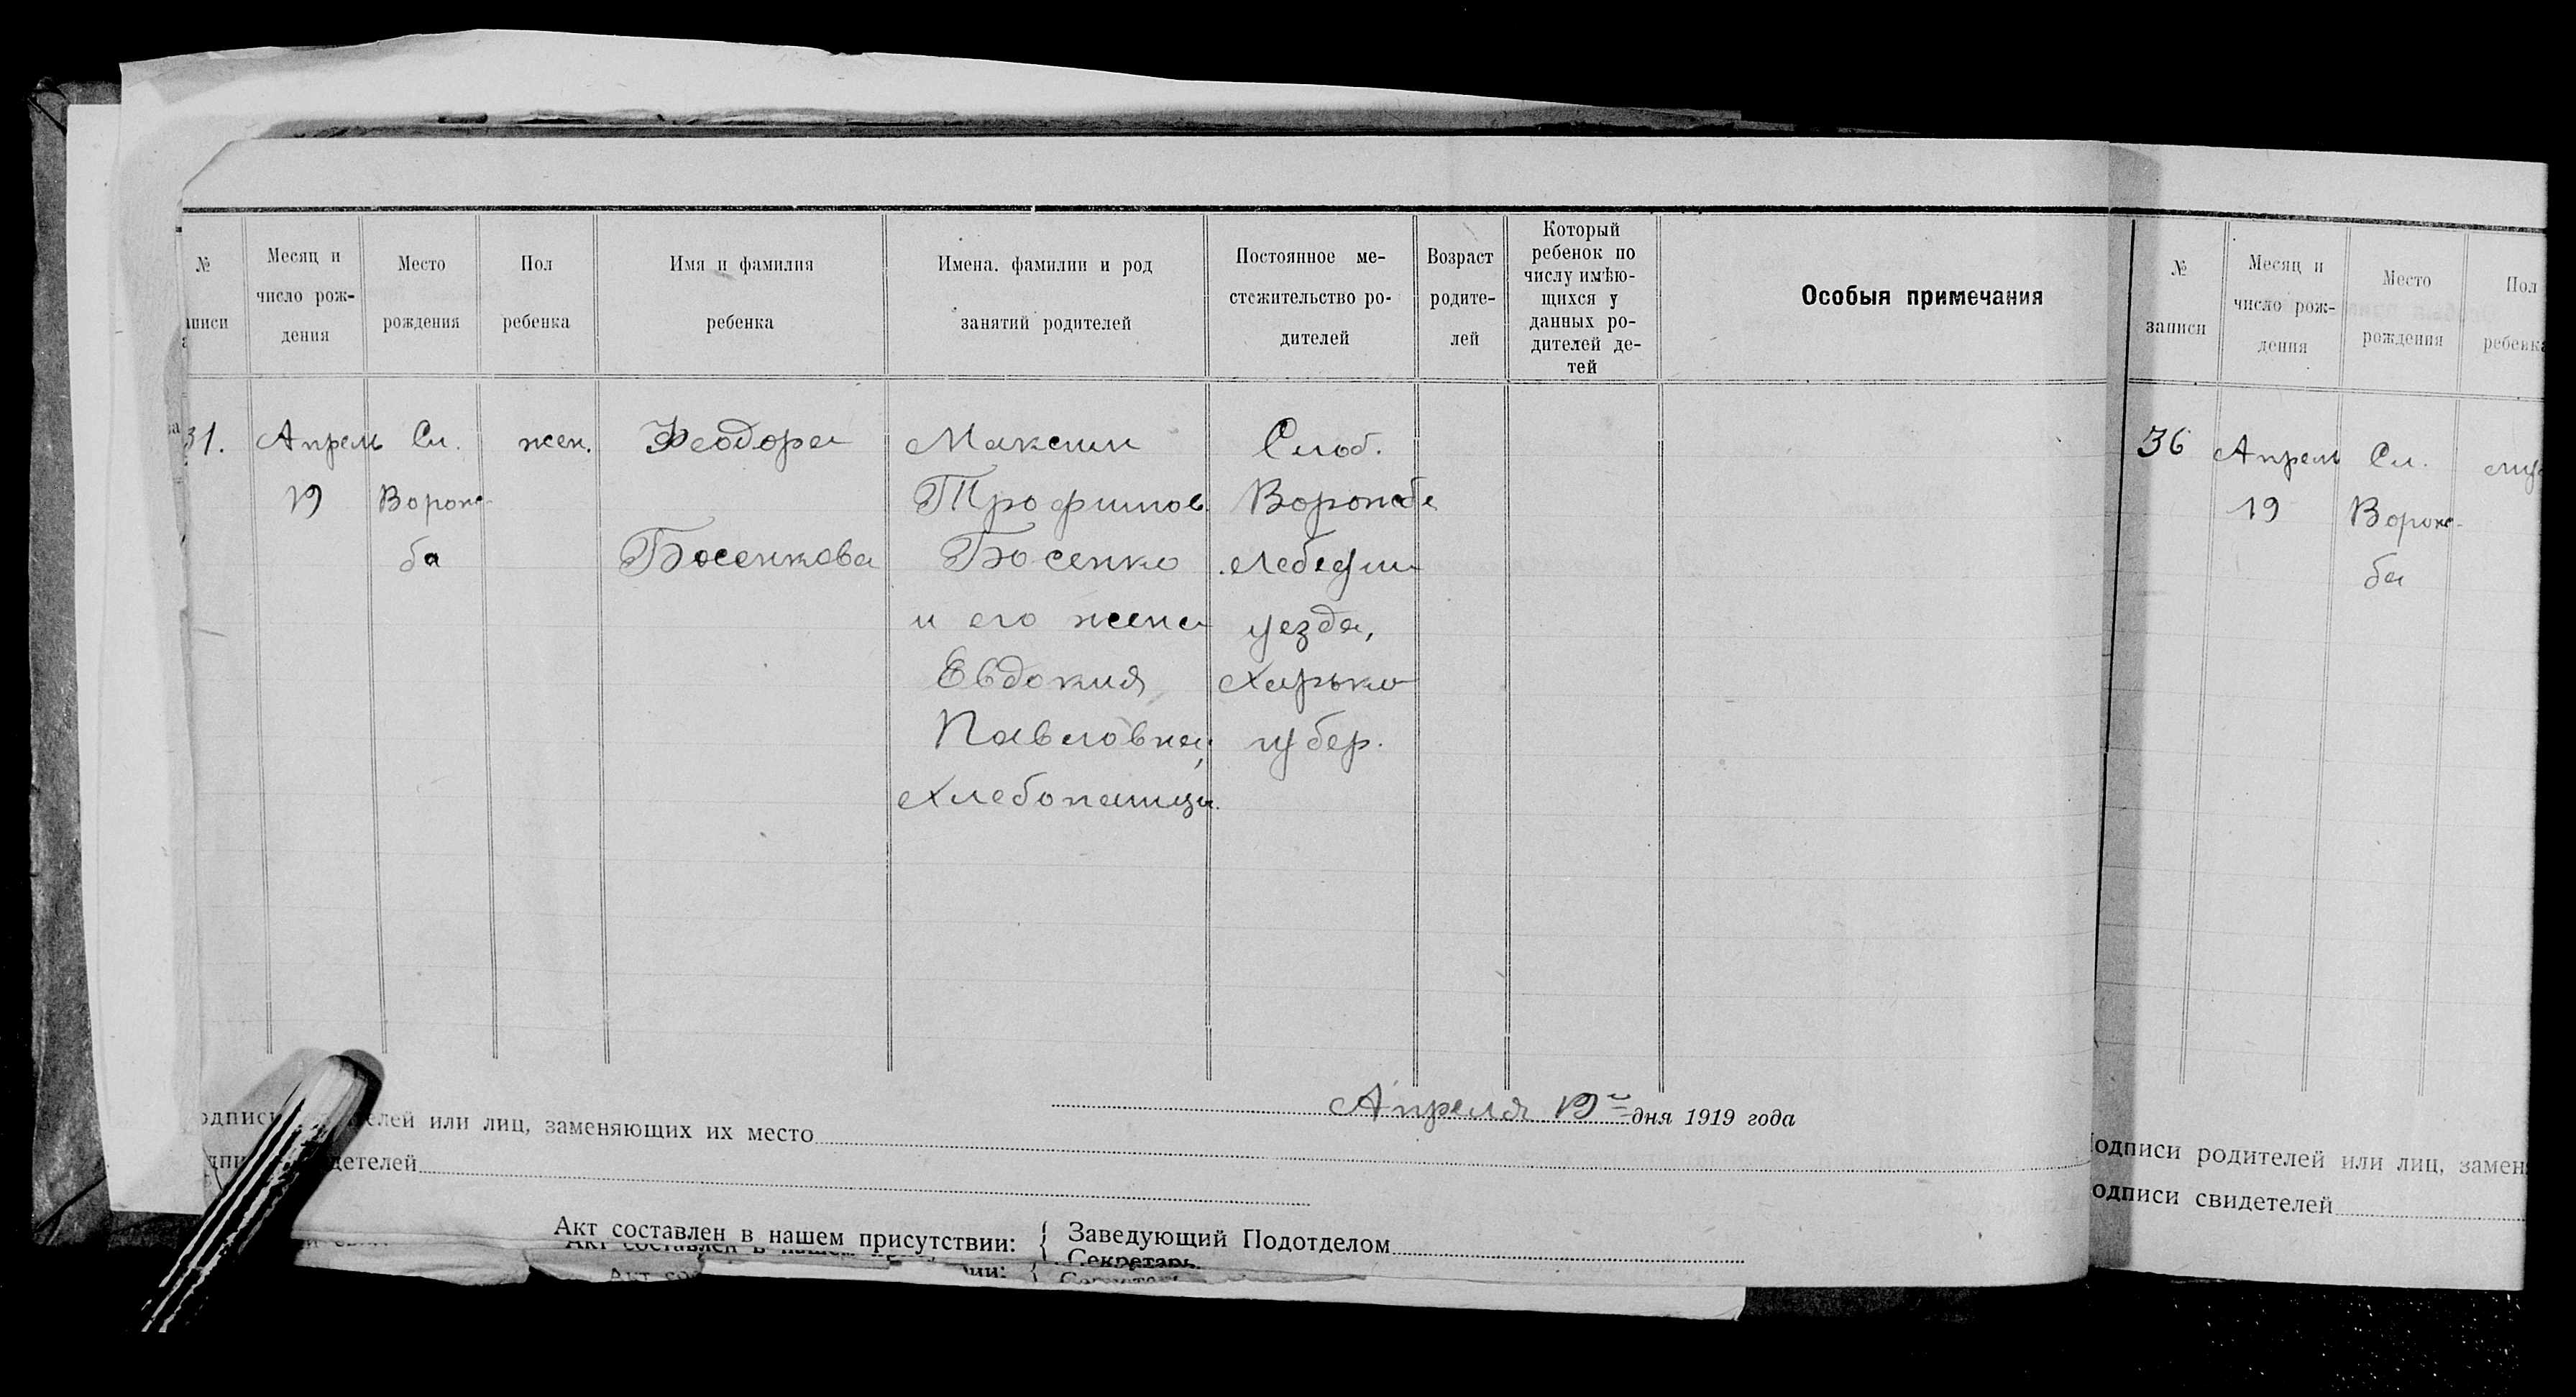 №
аписи
Месяц и
число рож-
дения
Место
рождения
Пол
ребенка
Имя и фамилия
ребенка
Имена. фамилии и род
занятий родителей
Постоянное ме-
стожительство ро-
дителей
Возраст
родите-
лей
Который
ребенок по
числу имѣю-
щихся у
данных ро-
дителей де-
тей
Особыя примечания
31.
Апрель
19
Сл.
Ворож-
ба
жен.
Феодора
Босенкова
Максим
Трофимов
Босенко
и его жена
Евдокия
Павловна,
Хлебопашцы.
Слоб.
Ворожбе
Лебедин
уезда,
Харько
губер.
Апреля 19го дня 1919 года
одписи телей или лиц, заменяющих их место
дписи детелей
Акт составлен в нашем присутствии: { Заведующий Подотделом
Секретарь
№
записи
Месяц и
число рож-
дения
Место
рождения
Пол
ребенка
36
Апрель
19
Сл.
Ворож-
ба
муж
одписи родителей или лиц, замен
одписи свидетелей